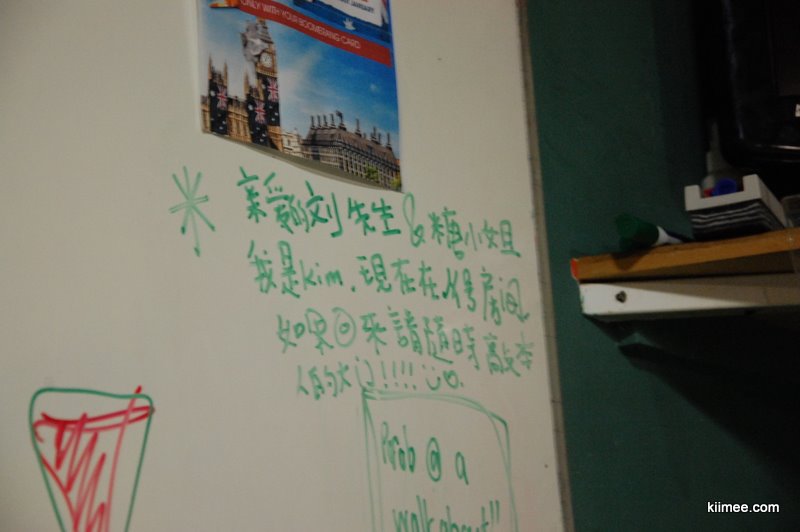 JANUARY
ONLY WITH YOUR BOOMERANG CARD
親愛的刘先生&糖小姐
我是Kim,現在在1号房间
如果回来請隨時敲本
人的大门!!!!
Prob @ a
walkabout"
kiimee.com